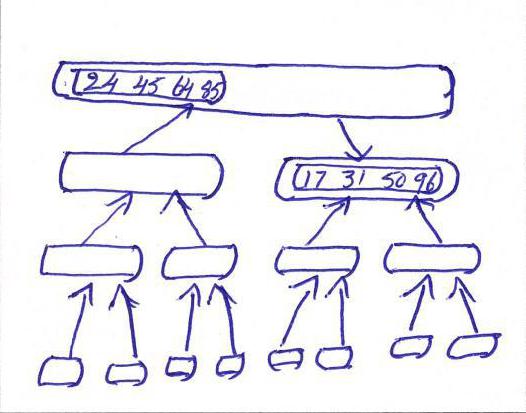 24 45 64 85
17 31 50 96